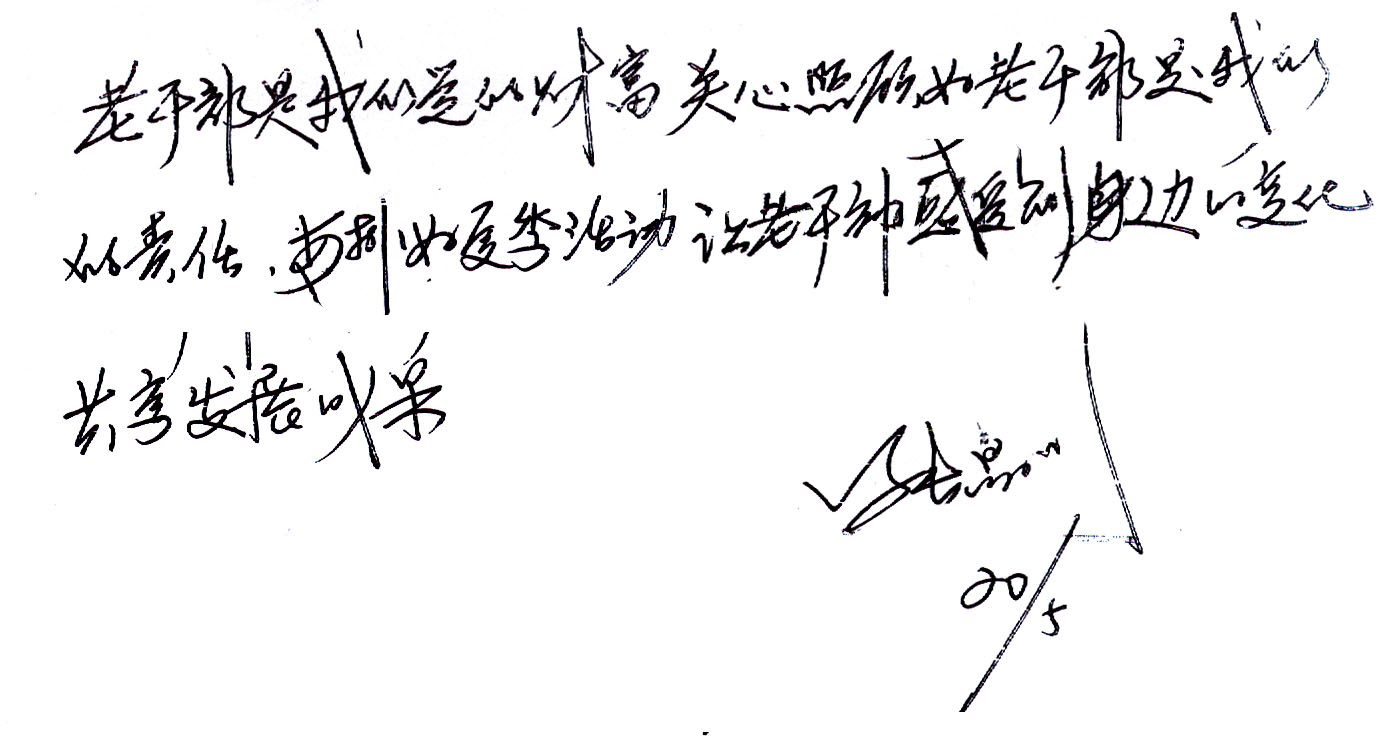 老干部是我们党的财富关心照顾好老干部是我们
的责任.安排好夏季活动让老干部感受到身边的变化
共享发展成果
20/5